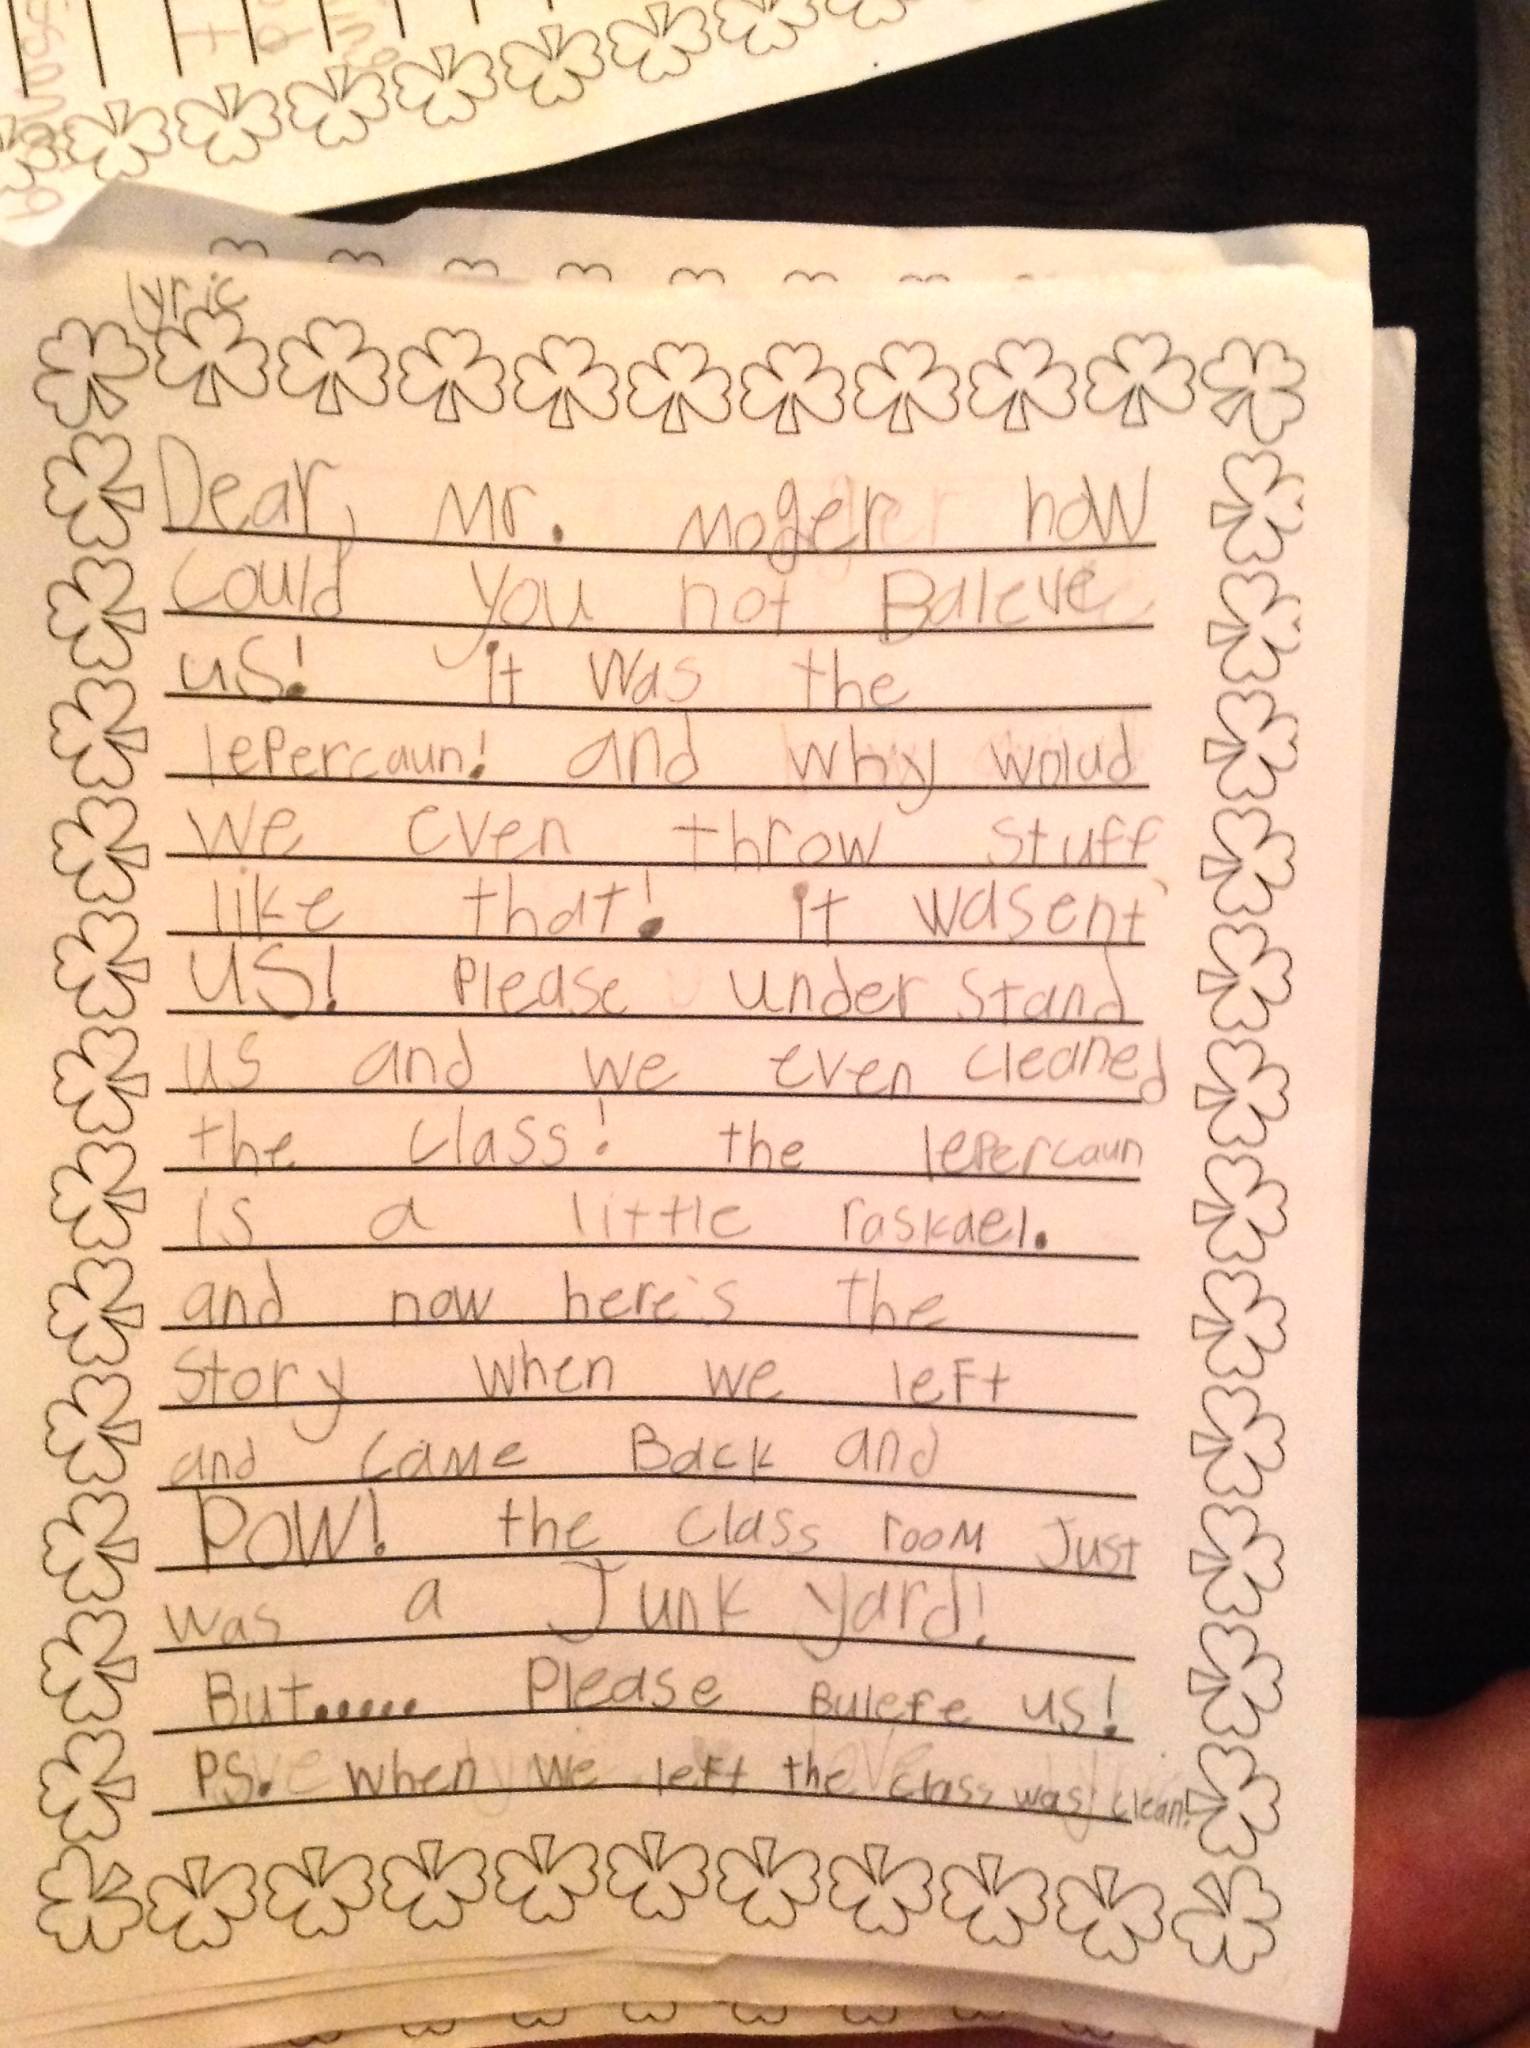 lyric
Dear, Mr. moger how
Could you not Baleve
us! it was the
lepercaun! and why wolud
we even throw stuff
like that! it wasent'
US! Please under stand
us and we even cleaned
the class! the lepercaun
is a little raskael.
and now here's the
story when we left
and came Back and
POW! the class room Just
was a Junk yard!
But..... Please Bulefe us!
PS. when we left the class was clean!